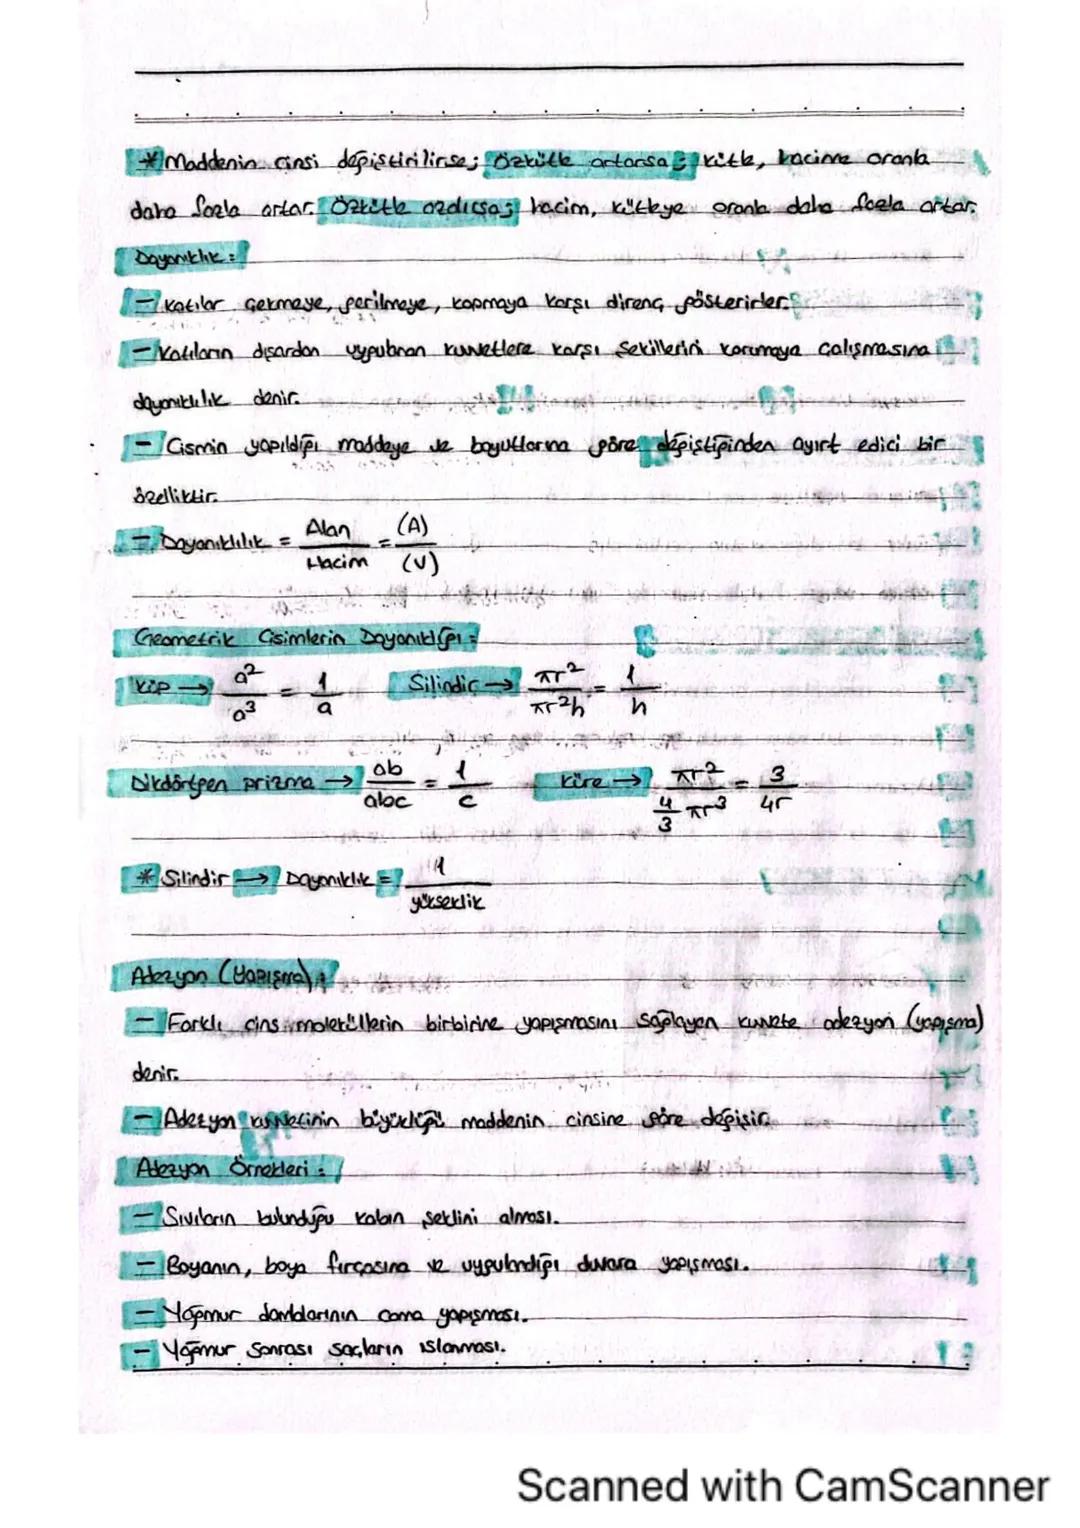 * Maddenin cinsi değiştirilirse; Özkütle artarsa; kütle, hacime oranla
daha fazla artar. Özkütle azalırsa; hacim, kütleye oranla daha fazla artar.
Dayanıklık:
- Katılar çekmeye, gerilmeye, kopmaya karşı direnç gösterirler.
- Katıların dışardan uygulanan kuvvetlere karşı şekillerini korumaya çalışmasına
dayanıklılık denir.
- Cismin yapıldığı maddeye ve boyutlarına göre değiştiğinden ayırt edici bir
özelliktir.
- Dayanıklılık = Alan / Hacim = (A) / (V)
Geometrik Cisimlerin Dayanıklığı:
Küp → a² / a³ = 1 / a Silindir → πr² / πr²h = 1 / h
Dikdörtgen prizma → ab / abc = 1 / c Küre → πr² / 4/3 πr³ = 3 / 4r
* Silindir → Dayanıklık = 1 / yükseklik
Adezyon (Yapışma):
- Farklı cins moleküllerin birbirine yapışmasını sağlayan kuvvete adezyon (yapışma)
denir.
- Adezyon kuvvetinin büyüklüğü maddenin cinsine göre değişir.
Adezyon Örnekleri:
- Sıvıların bulunduğu kabın şeklini alması.
- Boyanın, boya fırçasına ve uygulandığı duvara yapışması.
- Yağmur damlalarının cama yapışması.
- Yağmur sonrası saçların ıslanması.
Scanned with CamScanner